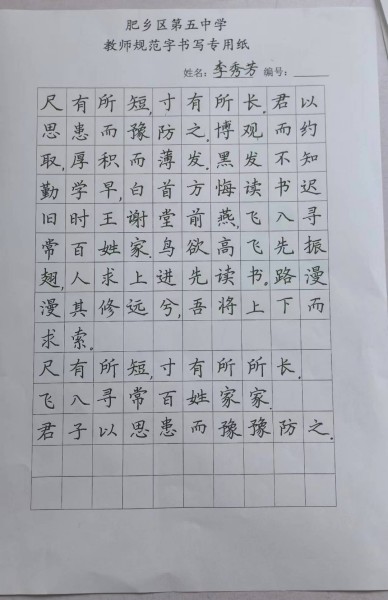 肥乡区第五中学
教师规范字书写专用纸
姓名：李秀芳 编号：______
尺有所短,寸有所长.君以
思患而豫防之.博观而约
取,厚积而薄发.黑发不知
勤学早,白首方悔读书迟
旧时王谢堂前燕,飞入寻
常百姓家.鸟欲高飞先振
翅,人求上进先读书.路漫
漫其修远兮,吾将上下而
求索.
尺有所短,寸有所所长.
飞入寻常百姓家家.
君子以思患而豫豫防之.